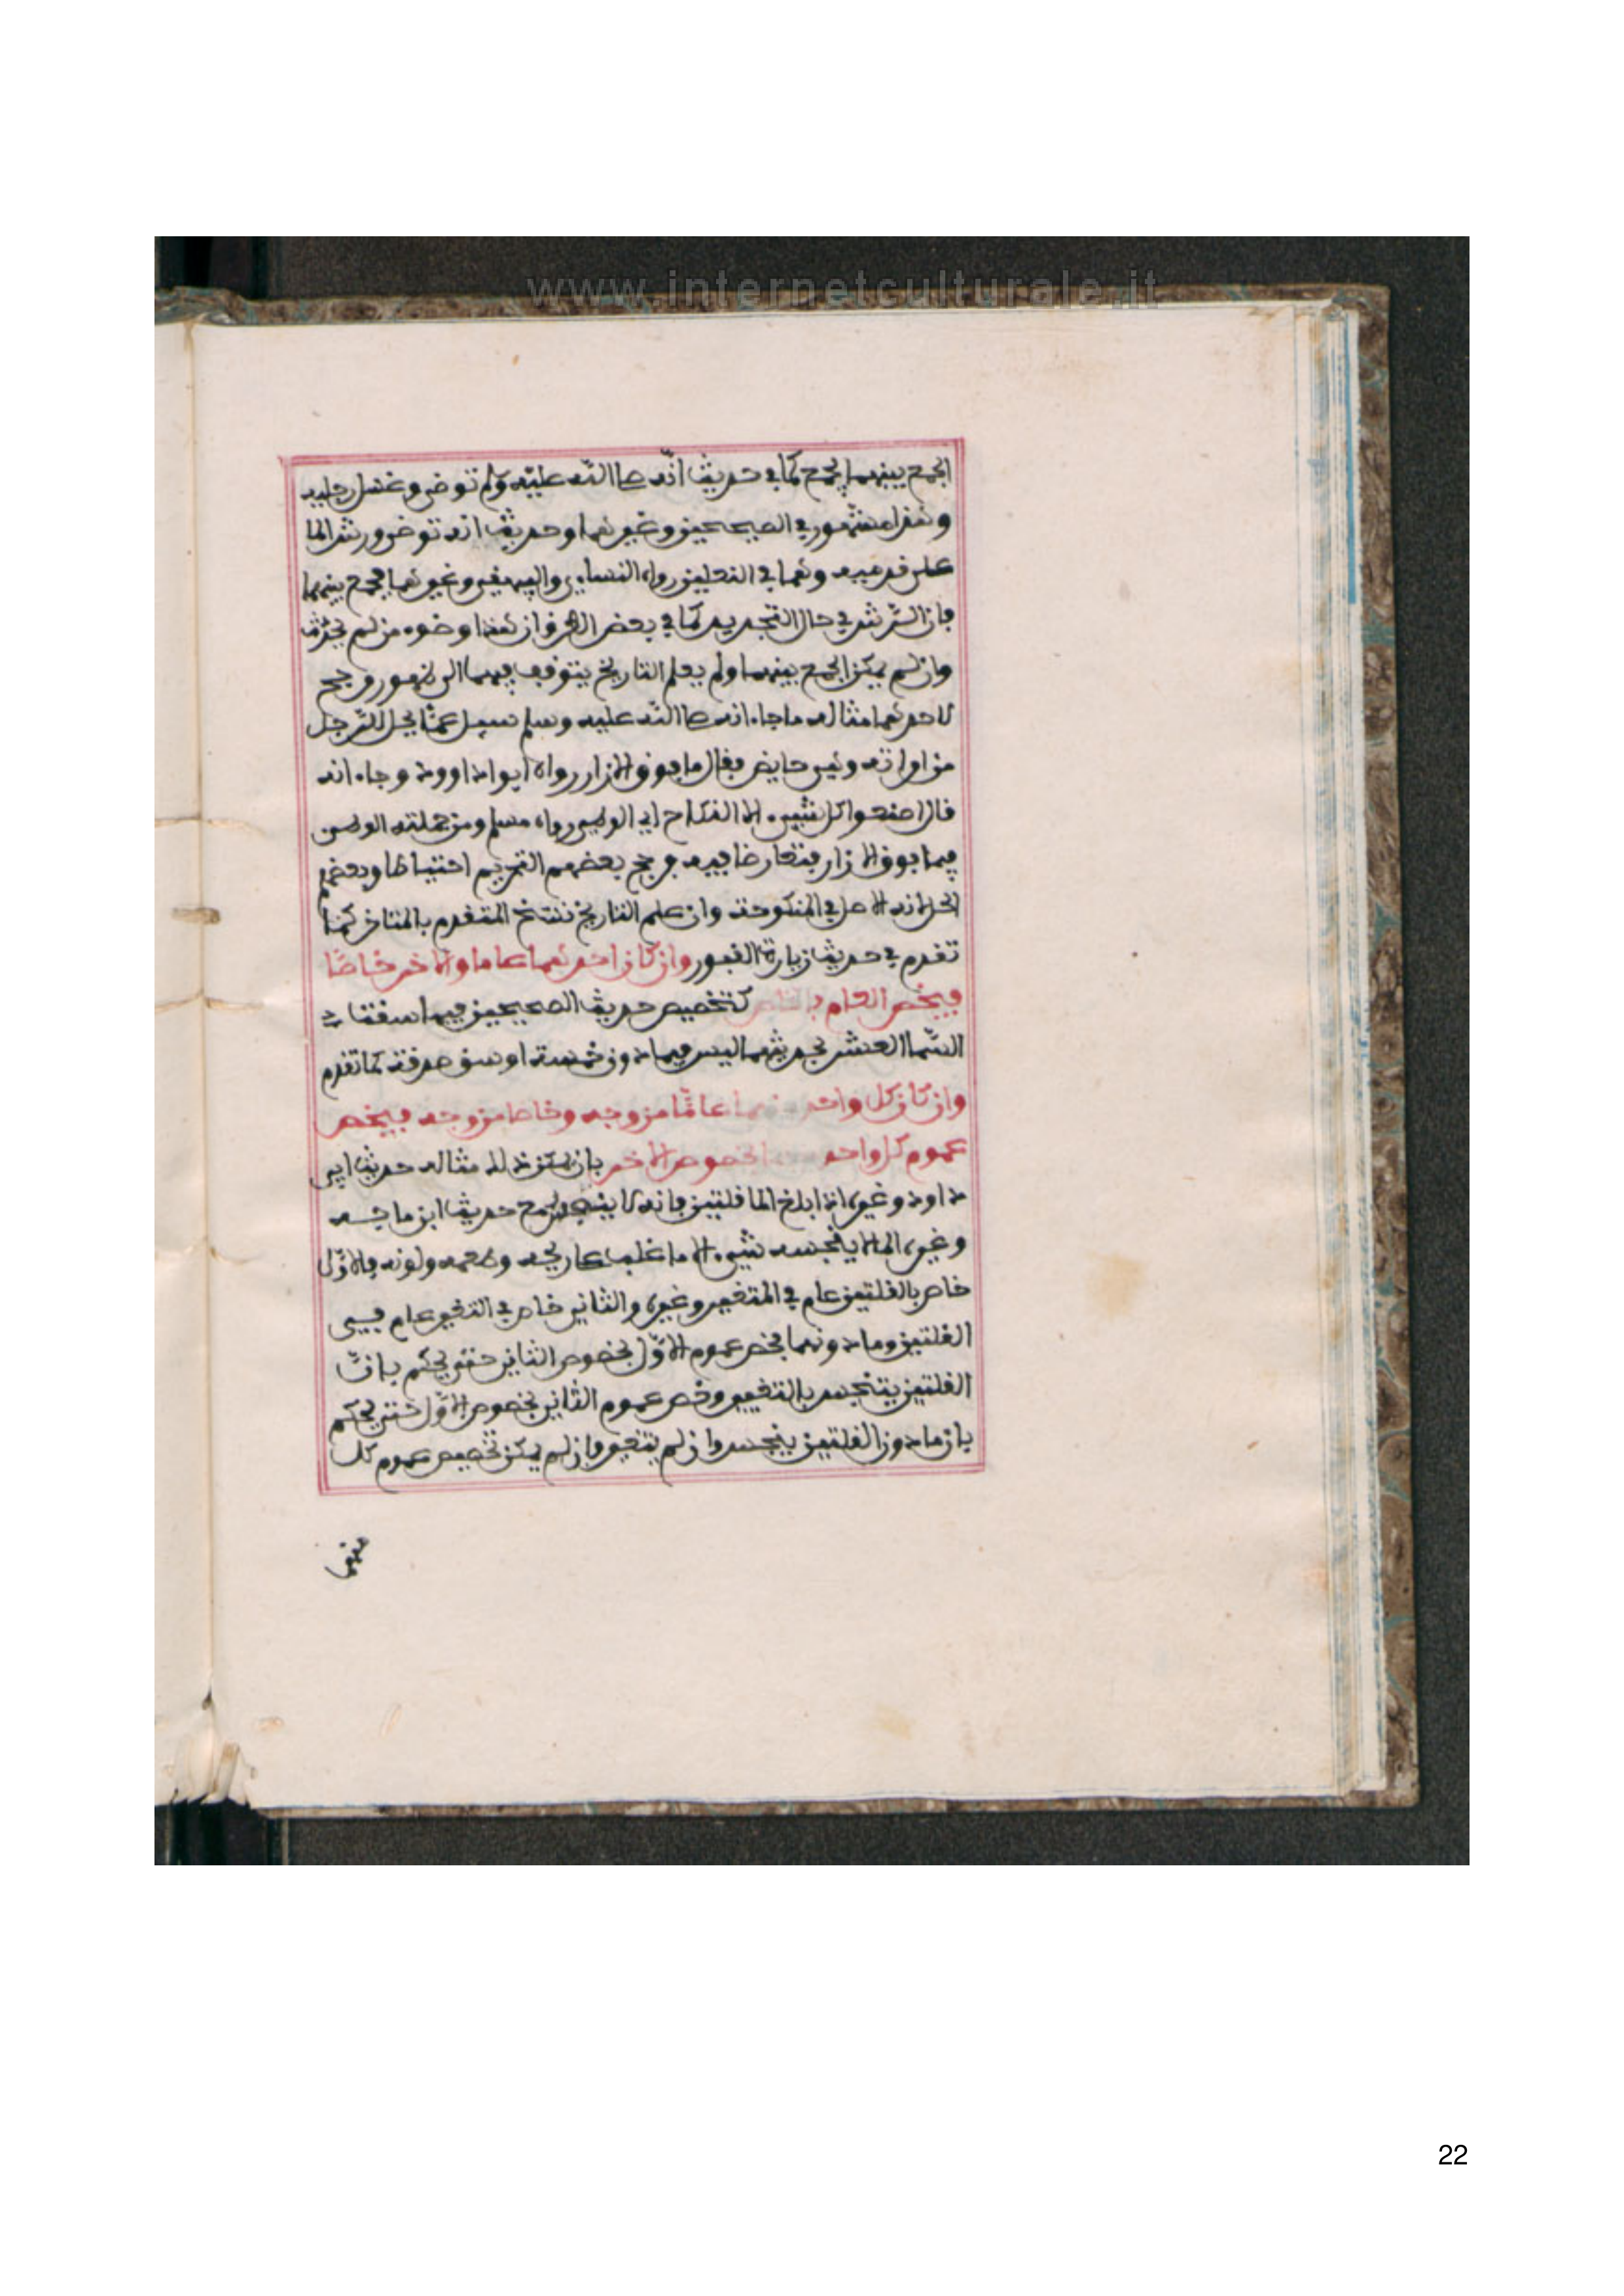 www.internetculturale.it
الجمع بينهما يجمع كما في حديث انّه صلى اللّه عليه وسلم توضى وغسل رجليه
وهذا مشهور في الصحيحين وغيرهما وحديث انه توضى ورش الما
على قدميه وهما في النعلين رواه النساءي والبيهقي وغيرهما فجمع بينهما
بان الرّش في حال التجديد كما في بعض الطرق ان هذا وضوء من لم يحدث
وان لم يمكن الجمع بينهما ولم يعلم التاريخ يتوقف فيهما الى ظهور مرجح
لاحدهما مثاله ما جاء انه صلى اللّه عليه وسلم سيل عمّا يحل للرّجل
من امراته وهي حايض فقال ما فوق الازار رواه ابوا داوود وجاء انه
قال اصنعوا كل شيء الا النكاح اي الوطي رواه مسلم ومن جملته الوطي
فيما فوق الازار فتعارضا فيه فرجح بعضهم التحريم احتياطا وبعضهم
الحل لانه الاصل في المنكوحة وان علم التاريخ ننسخ المتقدم بالمتاخر كما
تقدم في حديث زيارة القبور وان كان احدهما عاما والاخر خاصّا
فيخص العام بالخاص كتخصيص حديث الصحيحين فيما سقت
السّما العشر بحديثهما ليس فيما دون خمسة اوسق صدقة كما تقدم
وان كان كل واحد منهما عامّا من وجه وخاصا من وجه فيخص
عموم كل واحد بخصوص الاخر بان يمكن ذلك مثاله حديث ابي
داود وغيره اذا بلغ الما قلتين فانه لا ينجس مع حديث ابن ماجه
وغيره الما لا ينجسه شيء الا ما غلب على ريحه وطعمه ولونه فالاوّل
خاص بالقلتين عام في المتغير وغيره والثاني خاص في التغير عام في
القلتين وما دونهما فخص عموم الاوّل بخصوص الثاني حتى يحكم بانّ
القلتين يتنجس بالتغيير وخص عموم الثاني بخصوص الاوّل حتى يحكم
بان ما دون القلتين ينجس وان لم يتغير فان لم يمكن تخصيص عموم كل
منهما
22